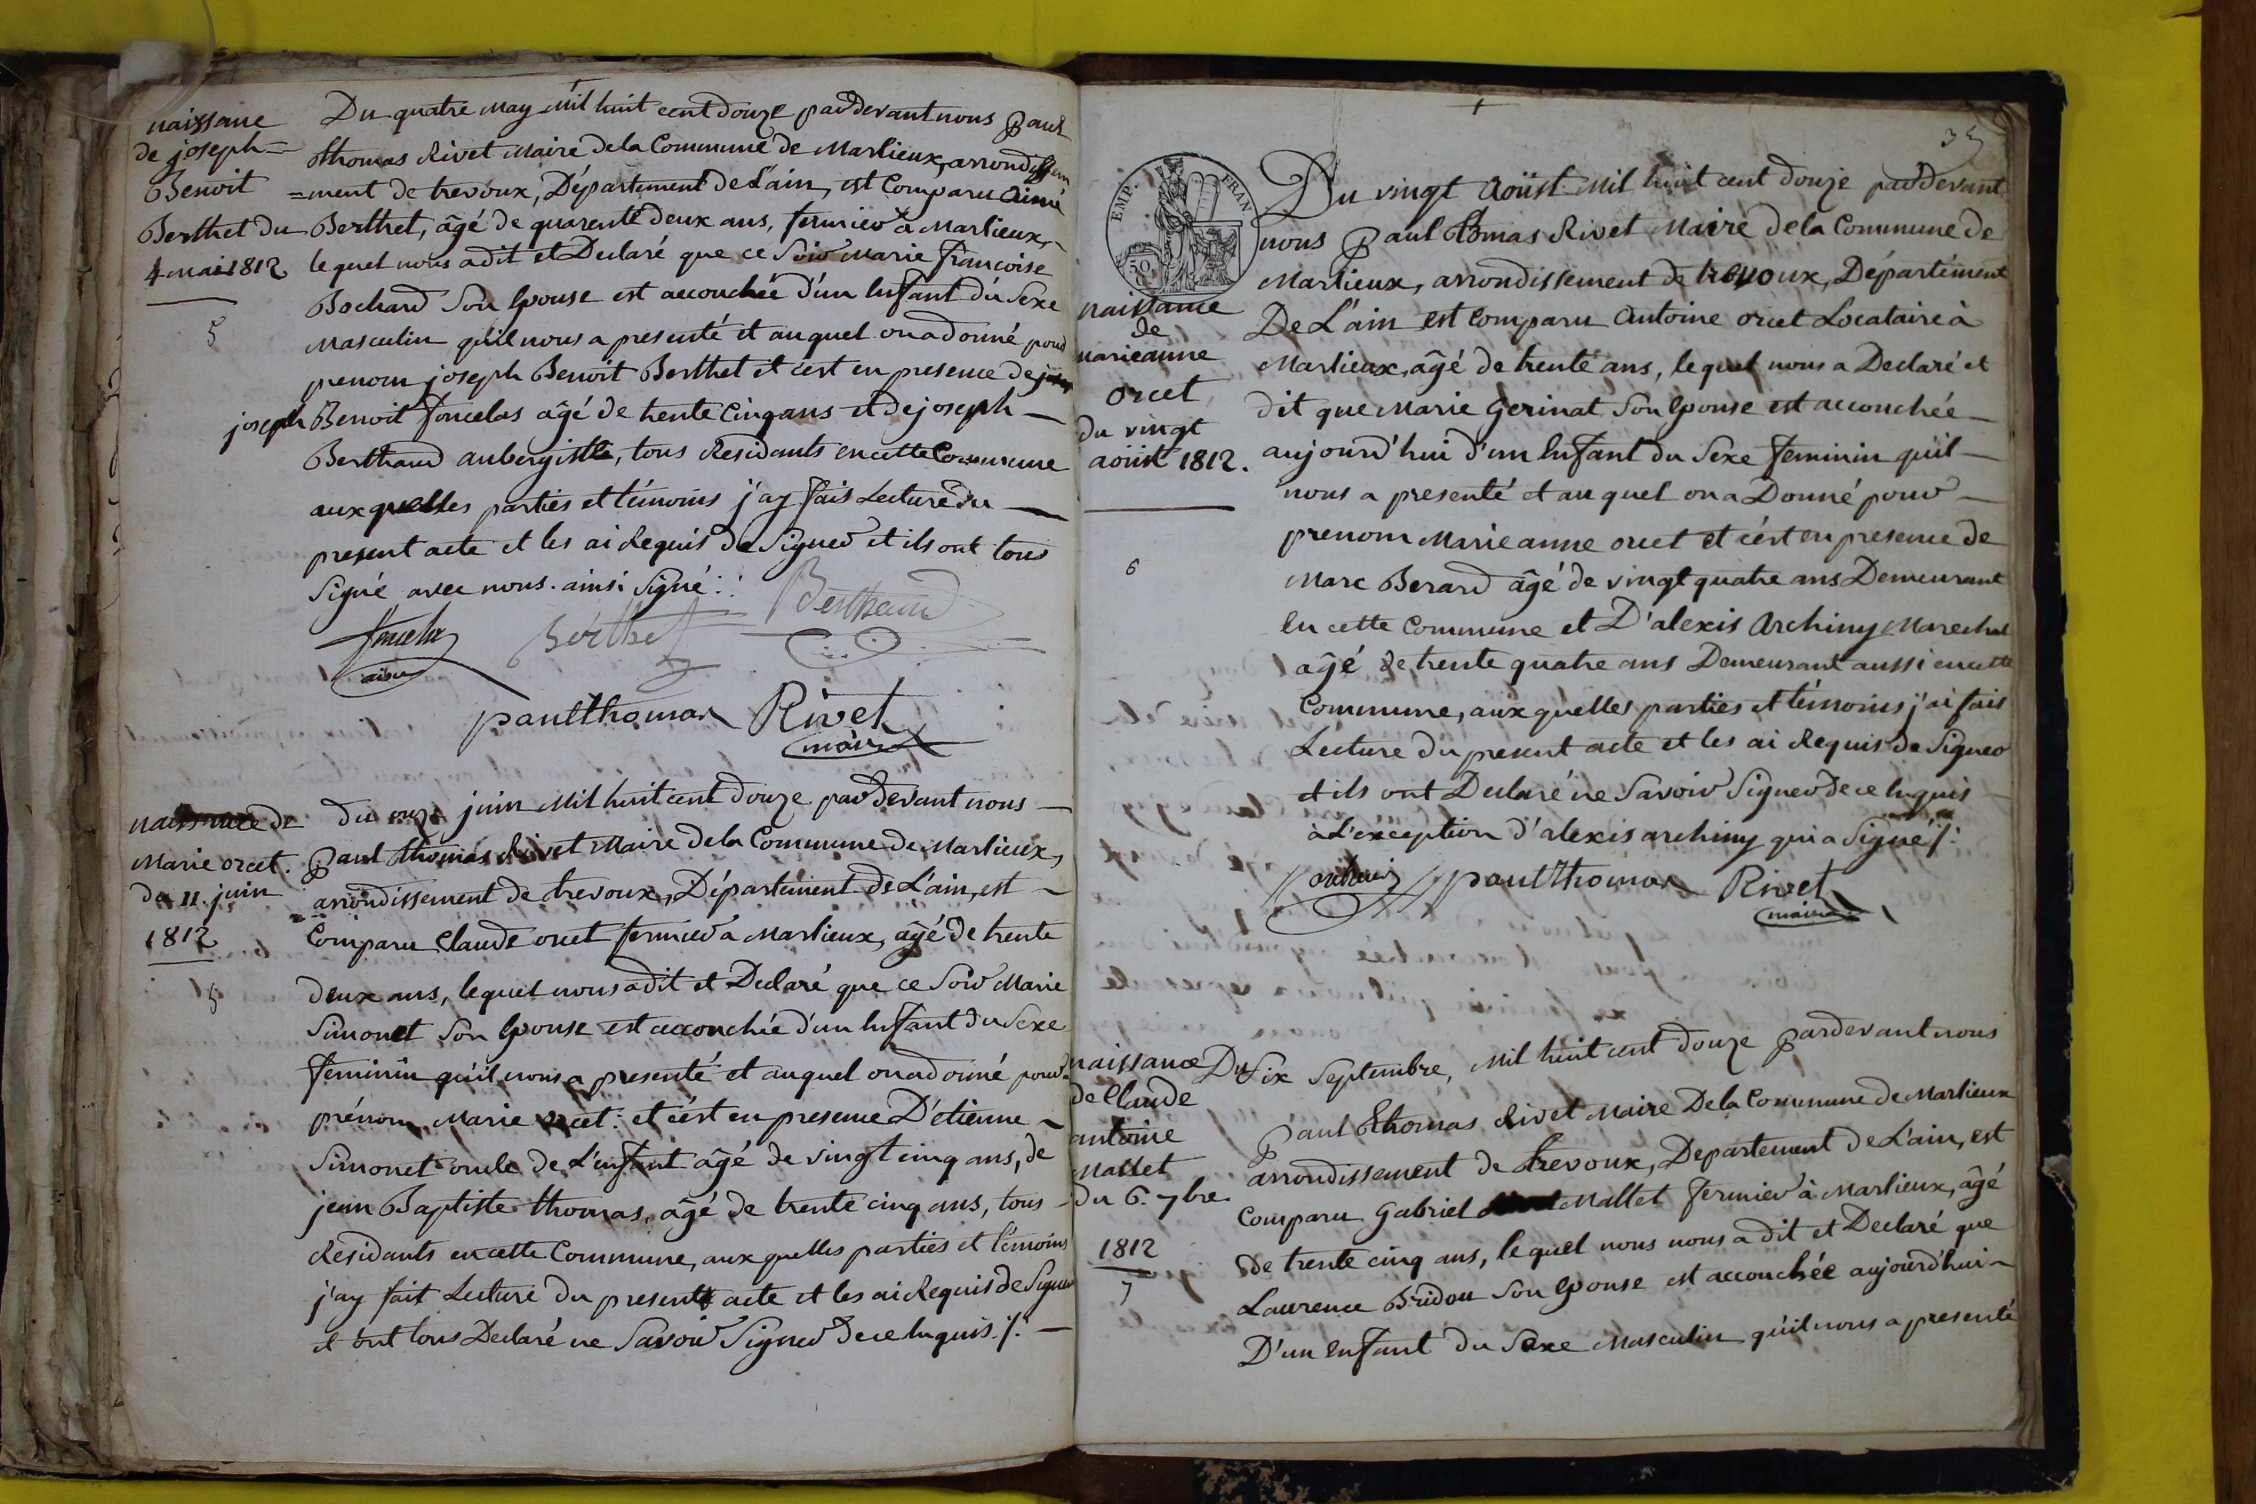 naissance
de joseph=
Benoit
Berthet du
4 mai 1812
5
Du quatre May Mil huit cent douze pardevant nous Paul
thomas Rivet Maire dela Commune de Marlieux, arrondissem
=ment de trevoux, Département de L'ain, est Comparu Aimé
Berthet, âgé de quarente deux ans, fermier à Marlieux,
lequel nous a dit et Declaré que ce Soir Marie françoise
Bochard Son Epouse est accouchée d'un Enfant du Sexe
Masculin qu'il nous a presenté et auquel on a donné pour
prenom joseph Benoit Berthet et c'est en presence de
joseph Benoit foncelas âgé de trente Cinq ans et de joseph
Berthaud aubergiste, tous Residants en cette Commune
aux quelles parties et témoins j'ay fais Lecture du
present acte et les ai Requis de Signer et ils ont tous
Signé avec nous. ainsi Signé :.
Berthaud
Berthet
paulthomas Rivet
maire
naissance de
Marie orcet.
du 11. juin
1812
5
du onze juin Mil huit cent douze pardevant nous
Paul thomas Rivet Maire dela Commune de Marlieux,
arrondissement de trevoux, Département de L'ain, est
Comparu Claude orcet fermier à Marlieux, âgé de trente
deux ans, lequel nous a dit et Declaré que ce Soir Marie
Simonet Son Epouse est accouchée d'un Enfant du Sexe
feminin qu'il nous a presenté et auquel on a donné pour
prénom Marie orcet : et c'est en presence D'etienne
Simonet oncle de L'enfant âgé de vingt cinq ans, de
jean Baptiste thomas, âgé de trente cinq ans, tous
Residants en cette Commune, aux quelles parties et témoins
j'ay fait Lecture du present acte et les ai Requis de Signer
et ont tous Declaré ne Savoir Signer de ce Enquis ./.
35
EMP. FRAN
50
naissance
de
marieanne
orcet
du vingt
aoüst 1812.
6
Du vingt Aoüst Mil huit cent douze pardevant
nous Paul thomas Rivet Maire dela Commune de
Marlieux, arrondissement de trevoux, Département
De L'ain est Comparu Antoine orcet Locataire à
Marlieux, âgé de trente ans, lequel nous a Declaré et
dit que Marie Gerinat Son Epouse est accouchée
aujourd'hui d'un Enfant du Sexe feminin qu'il
nous a presenté et au quel on a Donné pour
prenom Marieanne orcet et c'est en presence de
Marc Berard âgé de vingt quatre ans Demeurant
En cette Commune et D'alexis Archiny Marechal
âgé de trente quatre ans Demeurant aussi en cette
Commune, aux quelles parties et témoins j'ai fais
Lecture du present acte et les ai Requis de Signer
et ils ont Declaré ne Savoir Signer de ce Enquis
à L'exception d'alexis archiny qui a Signé ./.
paulthomas Rivet
maire
naissance
de Claude
antoine
Mallet
du 6. 7bre
1812
7
Du Six Septembre, Mil huit cent douze pardevant nous
Paul thomas Rivet Maire Dela Commune de Marlieux
arrondissement de trevoux, Departement de L'ain, est
Comparu Gabriel Mallet fermier à Marlieux, âgé
de trente cinq ans, lequel nous nous a dit et Declaré que
Laurence Bridon Son Epouse est accouchée aujourd'hui
D'un Enfant du Sexe Masculin qu'il nous a presenté